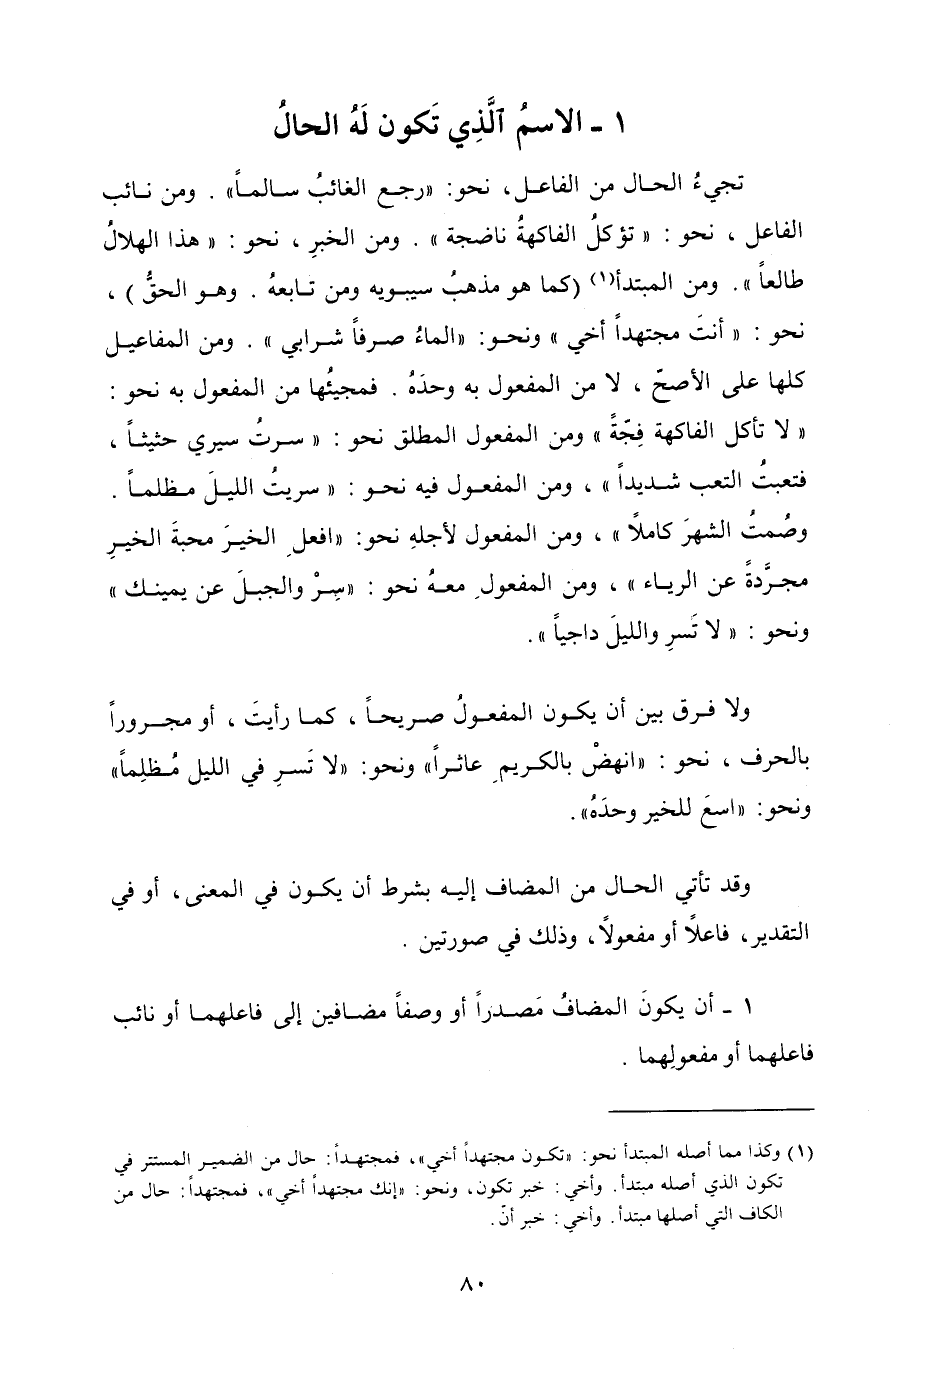 ١ ـ الاسمُ ٱلَّذِي تَكون لَهُ الحالُ
تجيءُ الحال من الفاعل، نحو: «رجع الغائبُ سالماً» . ومن نائب
الفاعل ، نحو : « تؤكلُ الفاكهةُ ناضجة » . ومن الخبرِ ، نحو : « هذا الهلالُ
طالعاً ». ومن المبتدأ(١) (كما هو مذهبُ سيبويه ومن تابعهُ . وهو الحقُّ ) ،
نحو : « أنتَ مجتهداً أخي » ونحو: «الماءُ صرفاً شرابي » . ومن المفاعيل
كلها على الأصحّ ، لا من المفعول به وحدَهُ . فمجيئُها من المفعول به نحو :
« لا تأكل الفاكهة فِجّةً » ومن المفعول المطلق نحو : « سرتُ سيري حثيثاً ،
فتعبتُ التعب شديداً » ، ومن المفعول فيه نحو : « سريتُ الليلَ مظلماً .
وصُمتُ الشهرَ كاملاً » ، ومن المفعول لأجلهِ نحو: «افعلِ الخيرَ محبةَ الخيرِ
مجرَّدةً عن الرياء » ، ومن المفعولِ معهُ نحو : «سِرْ والجبلَ عن يمينك »
ونحو : « لا تَسرِ والليلَ داجياً ».
ولا فرق بين أن يكون المفعولُ صريحاً ، كما رأيتَ ، أو مجروراً
بالحرف ، نحو : «انهضْ بالكريمِ عاثراً» ونحو: «لا تَسرِ في الليل مُظلِماً»
ونحو: «اسعَ للخير وحدَهُ».
وقد تأتي الحال من المضاف إليه بشرط أن يكون في المعنى، أو في
التقدير، فاعلاً أو مفعولاً، وذلك في صورتين .
١ ـ أن يكونَ المضافُ مَصدراً أو وصفاً مضافين إلى فاعلهما أو نائب
فاعلهما أو مفعولِهما .
(١) وكذا مما أصله المبتدأ نحو: «تكون مجتهداً أخي»، فمجتهداً: حال من الضمير المستتر في
تكون الذي أصله مبتدأ. وأخي: خبر تكون، ونحو: «إنك مجتهداً أخي»، فمجتهداً: حال من
الكاف التي أصلها مبتدأ. وأخي: خبر أنّ.
٨٠